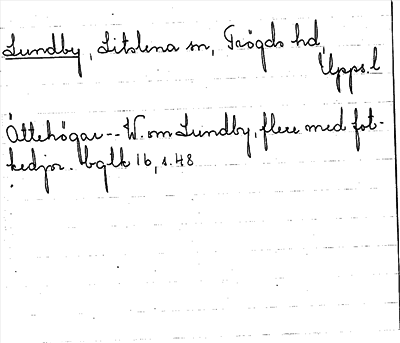 Lundby, Litslena sn, Trögds hd,
Upps. l
Ättehögar -- W. om Lundby, flere med fot-
kedjor. Uglk 16, s. 48